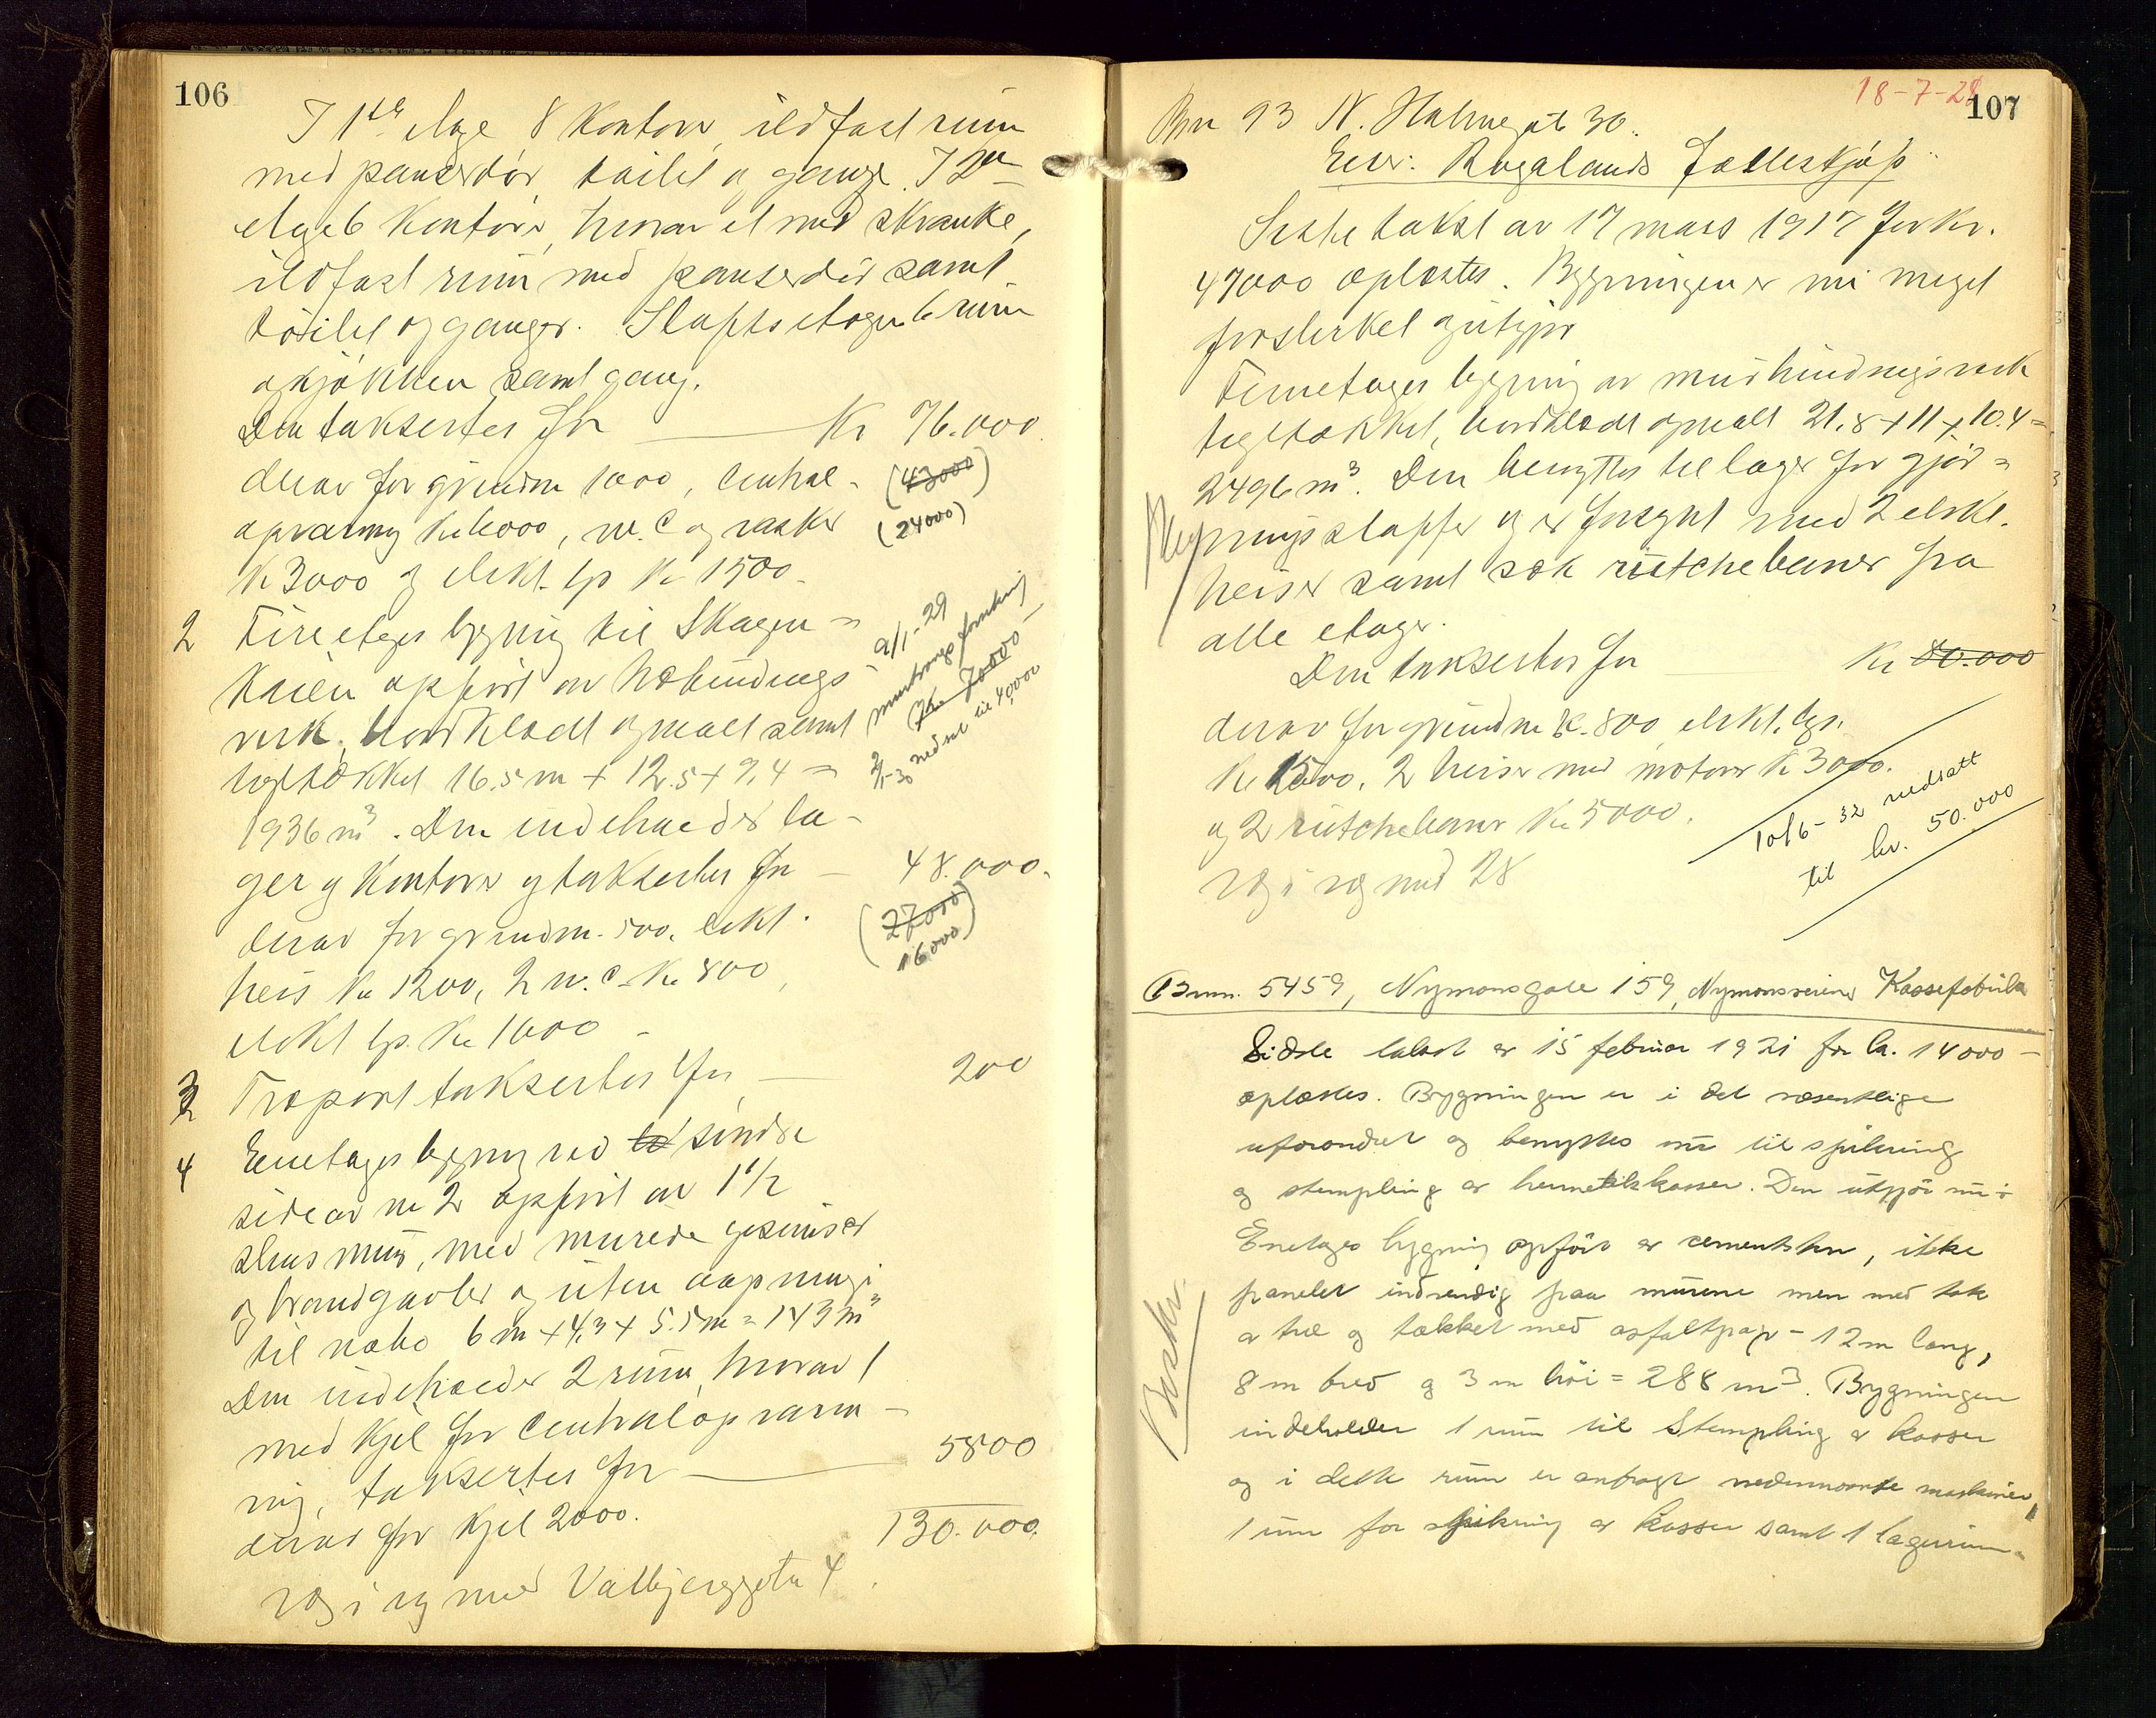 106
I 1ste etage 8 kontorer, ildfast rum
med panserdör, toilet og gange. I 2den
etage 6 kontorer, hvorav et med skranke,
ildfast rum med panserdör samt
toilet og ganger. Slapsetagen 6 rum
og kjökken samt gang.
Den takseres for Kr 76.000
derav for grundm 1000, central- (43000)
opvarmng Kr 6000, w.c og vasker (24000)
Kr 3000 og elekt. lys Kr 1500
2 Fireetages bygning til Skagen=
kaien opfört av træbindings
verk, bordklædt og malt samt
tegltækket 16.5 m + 12.5 + 9,4 =
9/1-29
murtvangsforsikring
Kr 70000
2/1-30 nedsat til 40,000
1936 m³. Den indeholder la-
ger og kontorer og takseres for 48.000.
derav for grundm. 500, elekt. (27000)
16,000
heis Kr 1200, 2 w.c. Kr 800,
elekt lys. Kr 1000
3 Træport takseres for 200
4 Enetages bygning ved søndre
side av nr 2 opfört av 1 1/2
stens mur, med murede gesimser
og brandgavler og uten aapning i
til nabo 6 m + 4,3 + 5.5 m = 143 m³
Den indeholder 2 rum, hvorav 1
med kjel for centralopvarm-
ing, takseres for 5800
derav for kjel 2000.
130.000.
og med Valbjerggata 4.
18-7-28
107
Bnr 93 N. Holmegt 30.
Eier: Rogalands Fælleskjøp
Siste takst av 17 mars 1917 for kr.
47000 oplæstes. Bygningen er nu meget
forsterket og utgjör
Fireetages bygning av murbindingsverk
tegltækket, bordklædt og malt 21,8 + 11 + 10.4 =
2496 m³. Den benyttes til lager for gjöd=
ningsstoffer og er forsynt med 2 elekt.
heiser samt sæk rutchebaner fra
alle etager.
Den takseres for Kr 80.000
derav for grundm K. 800, elekt. lys.
Kr 1500, 2 heiser med motorer K 3000.
og 2 rutchebaner Kr 5000.
10/6-32 nedsatt
til kr. 50.000
og med 28
Bnr. 5459, Nymansgate 159, Nymansveiens Kassefabrik
Sidste takst av 15 februar 1921 for kr. 14000-
oplæstes. Bygningen er i det væsentlige
uforandret og benyttes nu til spikring
og stempling av hermetikkasser. Den utgjör nu:
Enetages bygning opfört av cementsten, ikke
panelet indvendig paa murene men med tak
av træ og tækket med asfaltpap - 12 m lang,
8 m bred og 3 m höi = 288 m³. Bygningen
indeholder 1 rum til Stempling av kasser
og i dette rum er anbragt nedennævnte maskiner,
1 rum for spikring av kasser samt 1 lagerrum.
Beskr.